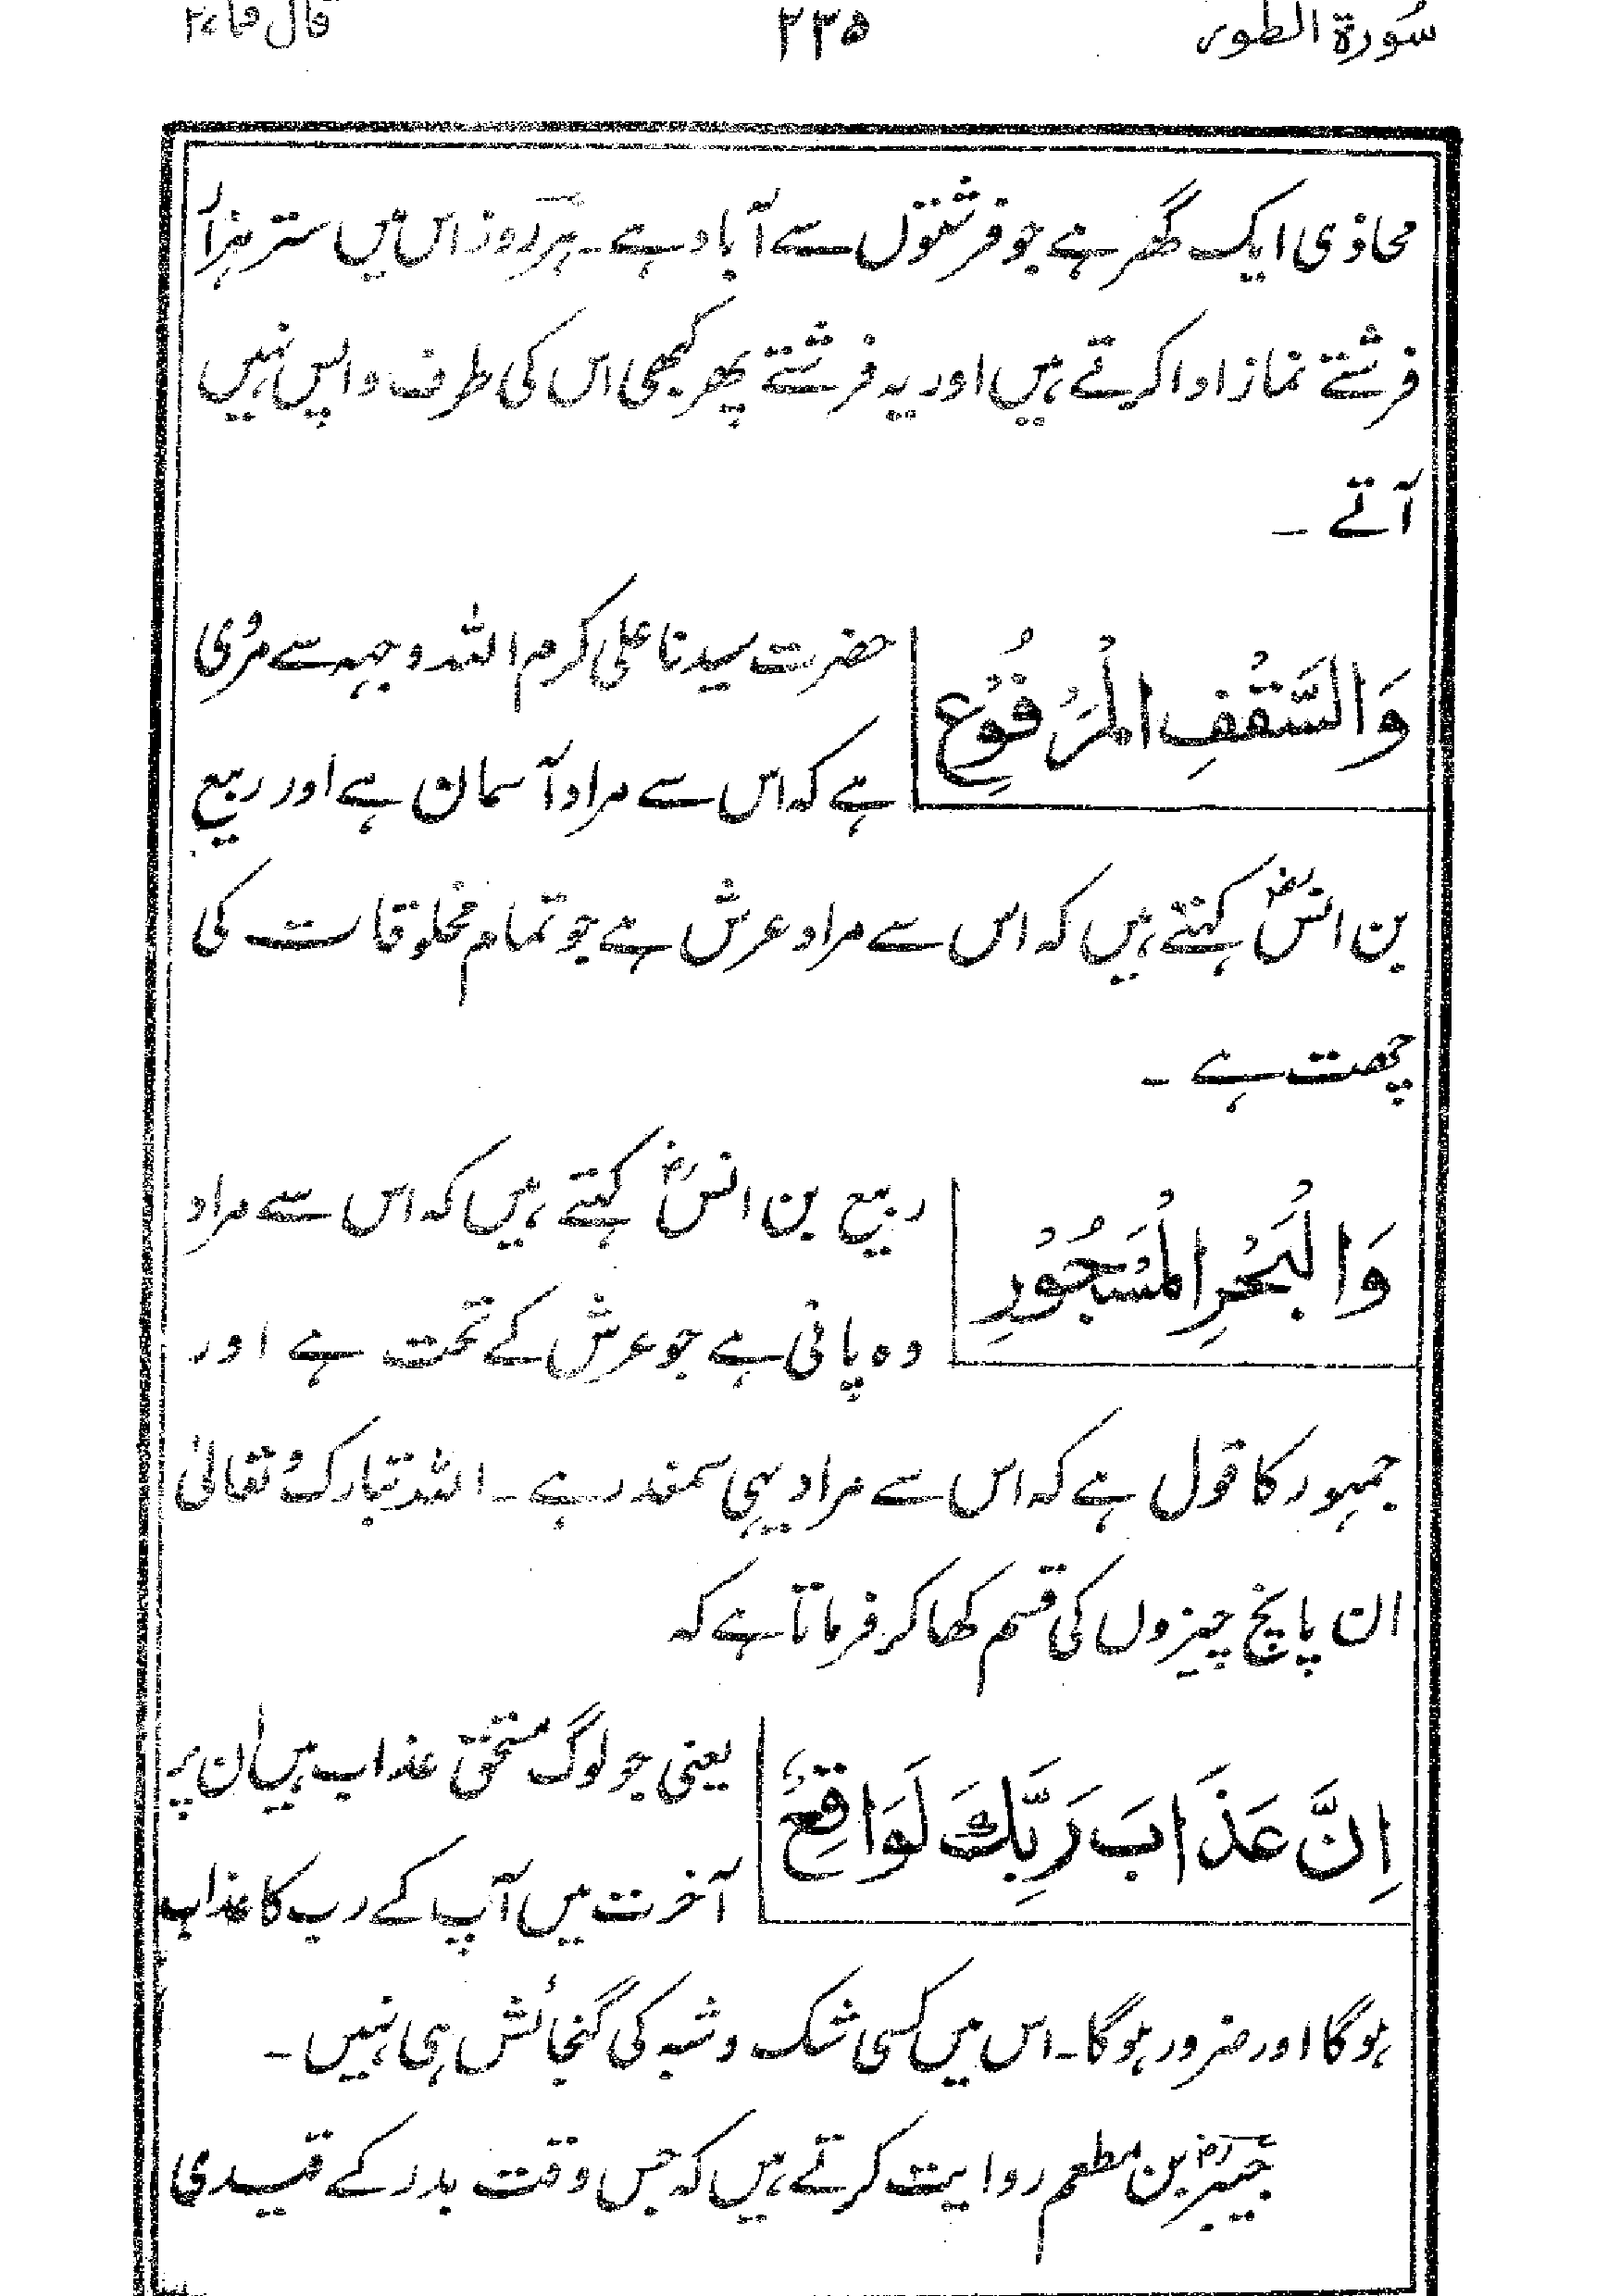 سُورة الطور ۲۳۵ قال فما ۲۷
محاذی ایک گھر ہے جو فرشتوں سے آباد ہے۔ ہر روز اس میں ستر ہزار
فرشتے نماز ادا کرتے ہیں اور یہ فرشتے پھر کبھی اس کی طرف واپس نہیں
آتے ۔
وَالسَّقْفِ الْمَرْفُوْعِ حضرت سیدنا علی کرم اللہ وجہہ سے مروی
ہے کہ اس سے مراد آسمان ہے اور ربیع
بن انسؓ کہتے ہیں کہ اس سے مراد عرش ہے جو تمام مخلوقات کی
چھت ہے ۔
وَالْبَحْرِ الْمَسْجُوْرِ ربیع بن انسؓ کہتے ہیں کہ اس سے مراد
وہ پانی ہے جو عرش کے تحت ہے اور
جمہور کا قول ہے کہ اس سے مراد یہی سمندر ہے ۔ اللہ تبارک و تعالیٰ
ان پانچ چیزوں کی قسم کھا کر فرماتا ہے کہ
اِنَّ عَذَابَ رَبِّكَ لَوَاقِعٌ یعنی جو لوگ مستحق عذاب ہیں ان پر
آخرت میں آپ کے رب کا عذاب
ہوگا اور ضرور ہوگا۔ اس میں کسی شک و شبہ کی گنجائش ہی نہیں ۔
جبیرؓ بن مطعم روایت کرتے ہیں کہ جس وقت بدر کے قیدی